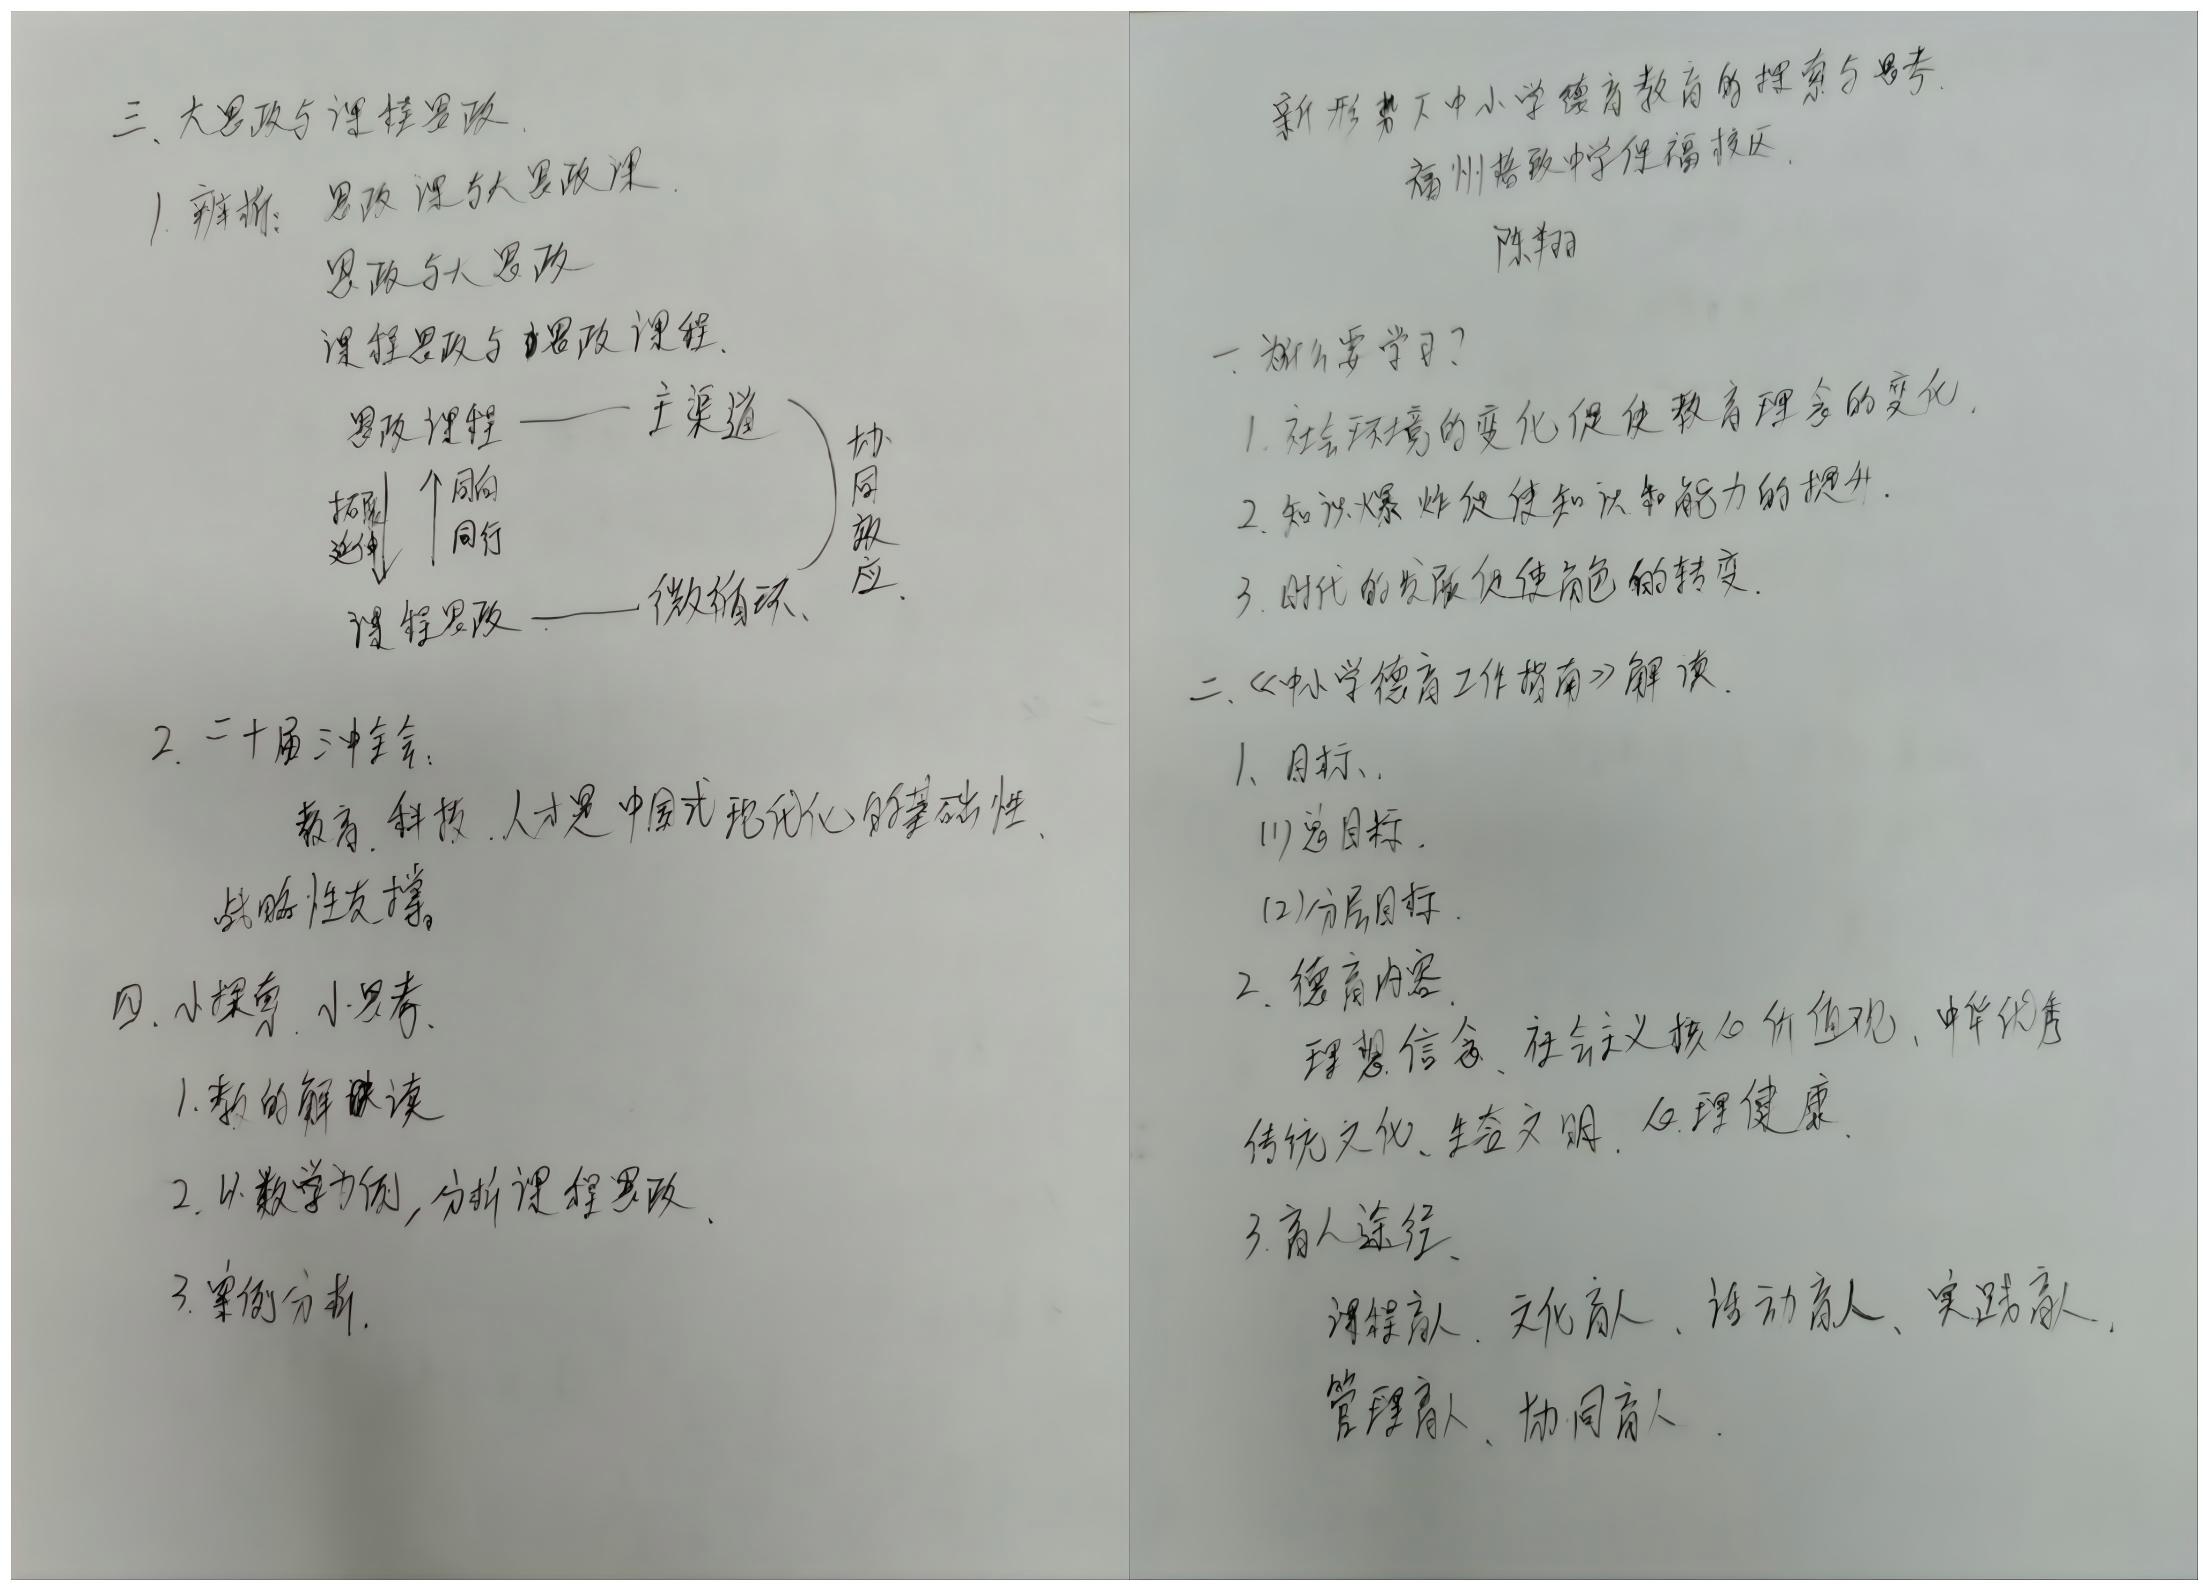 新形势下中小学德育教育的探索与思考.
福州格致中学保福校区.
陈翔
一.为什么要学习?
1.社会环境的变化促使教育理念的变化.
2.知识爆炸促使知识和能力的提升.
3.时代的发展促使角色的转变.
二、《中小学德育工作指南》解读.
1、目标、.
(1)总目标.
(2)分层目标.
2.德育内容.
理想信念、社会主义核心价值观、中华优秀
传统文化、生态文明.心理健康.
3.育人途径、
课程育人、文化育人、活动育人、实践育人、
管理育人、协同育人.
三、大思政与课程思政.
1.辨析:思政课与大思政课.
思政与大思政
课程思政与思政课程.
思政课程——主渠道
拓展
延伸
同向
同行
协同效应、
课程思政——微循环、
2.二十届三中全会:
教育.科技.人才是中国式现代化的基础性、
战略性支撑。
四、小探索.小思考、
1.教的解读
2.以数学为例,分析课程思政、
3.案例分析.